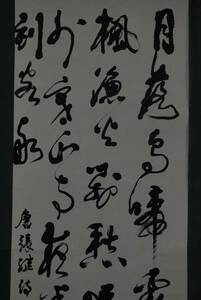 月落烏啼霜
楓漁火對愁眠
外寒山寺夜半
到客船
唐張繼詩